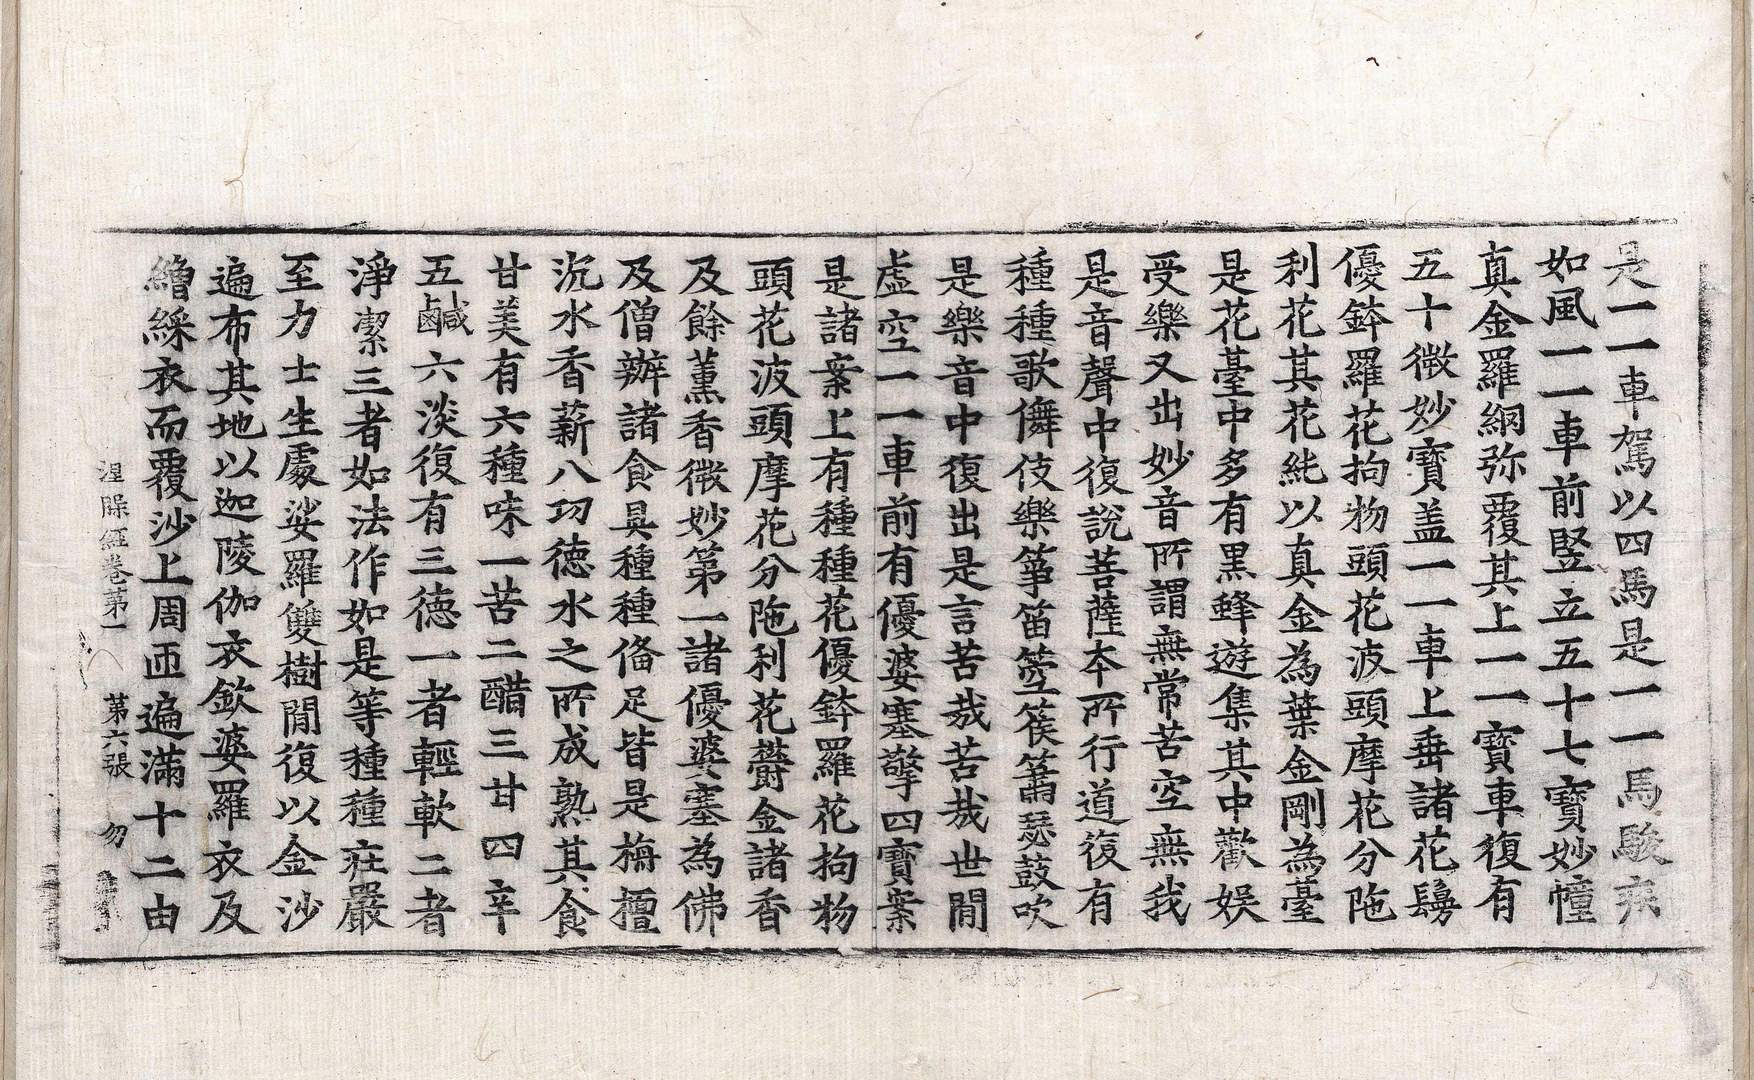 是一一車駕以四馬是一一馬駿疾
如風一一車前竪立五十七寶妙幢
真金羅網弥覆其上一一寶車復有
五十微妙寶盖一一車上垂諸花鬘
優鉢羅花拘物頭花波頭摩花分陁
利花其花純以真金為葉金剛為臺
是花臺中多有黒蜂遊集其中歡娛
受樂又出妙音所謂無常苦空無我
是音聲中復說菩薩本所行道復有
種種歌儛伎樂箏笛箜篌簫瑟鼓吹
是樂音中復出是言苦哉苦哉世閒
虛空一一車前有優婆塞擎四寶案
是諸案上有種種花優鉢羅花拘物
頭花波頭摩花分陁利花欝金諸香
及餘薰香微妙第一諸優婆塞為佛
及僧辦諸食具種種俻足皆是栴檀
沉水香薪八功德水之所成熟其食
甘美有六種味一苦二醋三甘四辛
五鹹六淡復有三德一者輕軟二者
淨潔三者如法作如是等種種莊嚴
至力士生處娑羅雙樹閒復以金沙
遍布其地以迦陵伽衣欽婆羅衣及
繒綵衣而覆沙上周匝遍滿十二由
涅槃經卷第一 第六張 勿